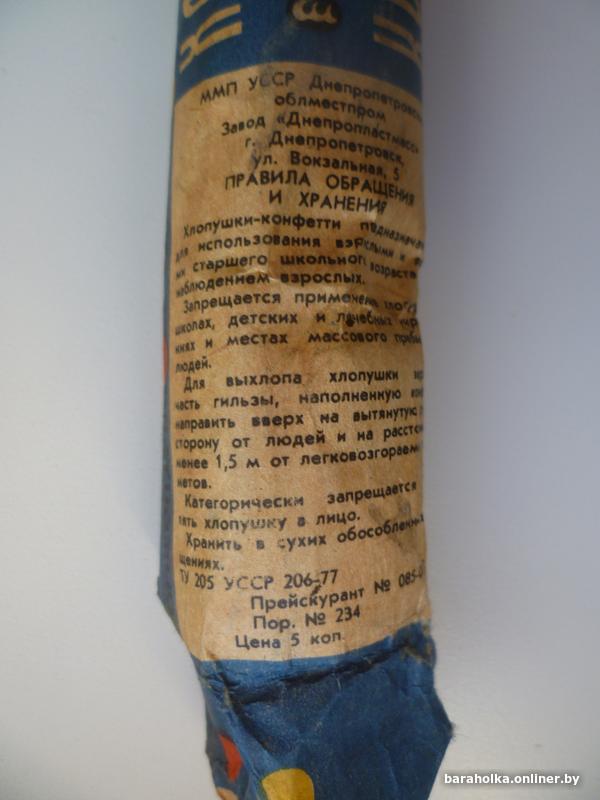 ММП УССР Днепропетровск
облместпром
Завод «Днепропластмасс»
г. Днепропетровск,
ул. Вокзальная, 5
ПРАВИЛА ОБРАЩЕНИЯ
И ХРАНЕНИЯ
Хлопушки-конфетти предназначе
для использования взрослыми и
ми старшего школьного возраста
наблюдением взрослых.
Запрещается применение
школах, детских и лечебных
ниях и местах массового
людей.
Для выхлопа хлопушки
часть гильзы, наполненную
направить вверх на вытянутую
сторону от людей и на
менее 1,5 м от легковозгораем
метов.
Категорически запрещается
лять хлопушку в лицо.
Хранить в сухих обособленных
щениях.
ТУ 205 УССР 206-77
Прейскурант № 085-
Пор. № 234
Цена 5 коп.
baraholka.onliner.by